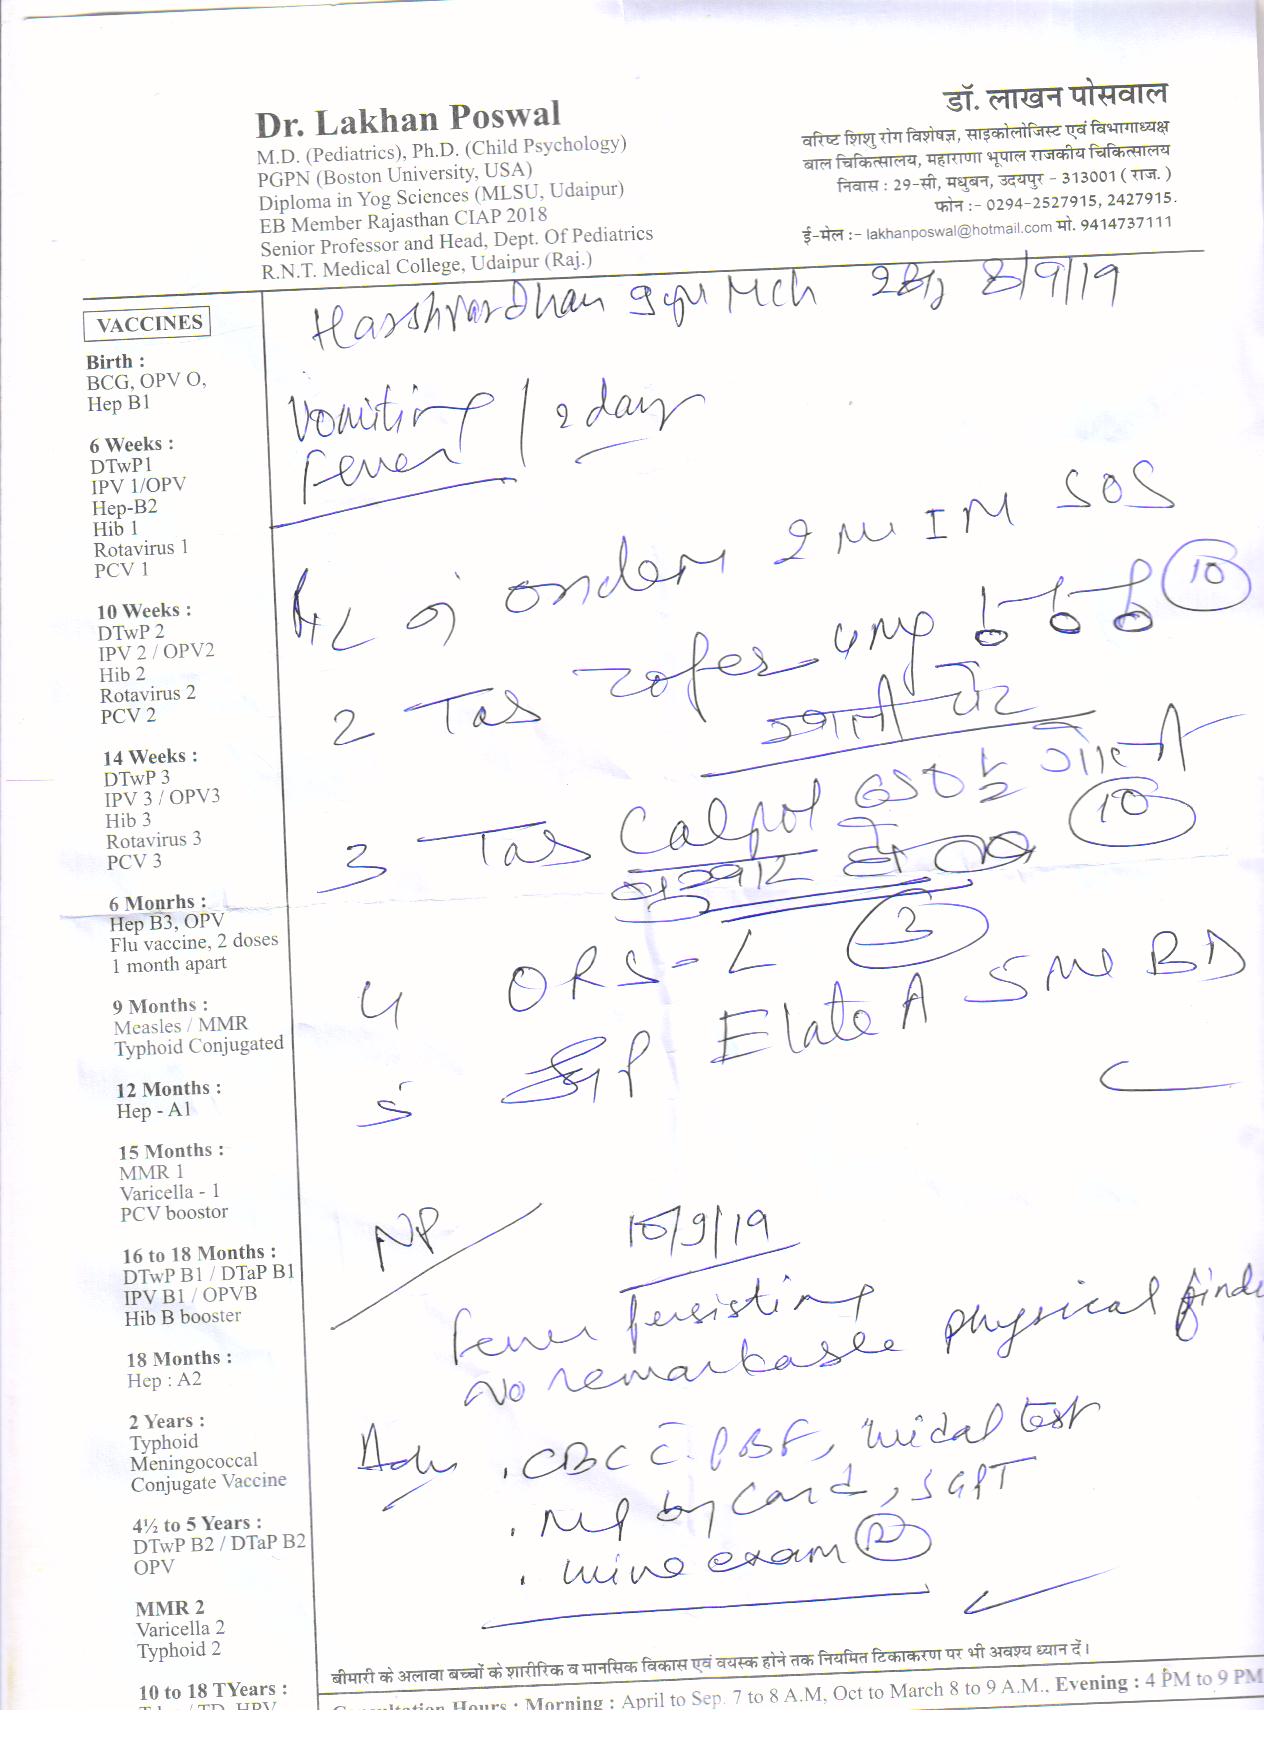 Dr. Lakhan Poswal
M.D. (Pediatrics), Ph.D. (Child Psychology)
PGPN (Boston University, USA)
Diploma in Yog Sciences (MLSU, Udaipur)
EB Member Rajasthan CIAP 2018
Senior Professor and Head, Dept. Of Pediatrics
R.N.T. Medical College, Udaipur (Raj.)
डॉ. लाखन पोसवाल
वरिष्ट शिशु रोग विशेषज्ञ, साइकोलोजिस्ट एवं विभागाध्यक्ष
बाल चिकित्सालय, महाराणा भूपाल राजकीय चिकित्सालय
निवास : 29-सी, मधुबन, उदयपुर - 313001 ( राज. )
फोन :- 0294-2527915, 2427915.
ई-मेल :- lakhanposwal@hotmail.com मो. 9414737111
Harshvardhan 9 Mch 8/9/19
Vomiting / 2 days
Fever
2 ml IM SOS
2 Tab Zofer 4mg 10
3 Tab Calpol 650 ½ गोली
बुखार हो तब 10
4 ORS-L 3
5 Elate A 5 ml BD
NP
10/9/19
Fever Persisting
No remarkable physical
Adv . CBC c̄ PBF, widal test
. MP by Card, SGPT
. urine exam R
VACCINES
Birth :
BCG, OPV O,
Hep B1
6 Weeks :
DTwP1
IPV 1/OPV
Hep-B2
Hib 1
Rotavirus 1
PCV 1
10 Weeks :
DTwP 2
IPV 2 / OPV2
Hib 2
Rotavirus 2
PCV 2
14 Weeks :
DTwP 3
IPV 3 / OPV3
Hib 3
Rotavirus 3
PCV 3
6 Monrhs :
Hep B3, OPV
Flu vaccine, 2 doses
1 month apart
9 Months :
Measles / MMR
Typhoid Conjugated
12 Months :
Hep - A1
15 Months :
MMR 1
Varicella - 1
PCV boostor
16 to 18 Months :
DTwP B1 / DTaP B1
IPV B1 / OPVB
Hib B booster
18 Months :
Hep : A2
2 Years :
Typhoid
Meningococcal
Conjugate Vaccine
4½ to 5 Years :
DTwP B2 / DTaP B2
OPV
MMR 2
Varicella 2
Typhoid 2
10 to 18 TYears :
बीमारी के अलावा बच्चों के शारीरिक व मानसिक विकास एवं वयस्क होने तक नियमित टिकाकरण पर भी अवश्य ध्यान दें।
Hours : Morning : April to Sep. 7 to 8 A.M, Oct to March 8 to 9 A.M., Evening : 4 PM to 9 PM